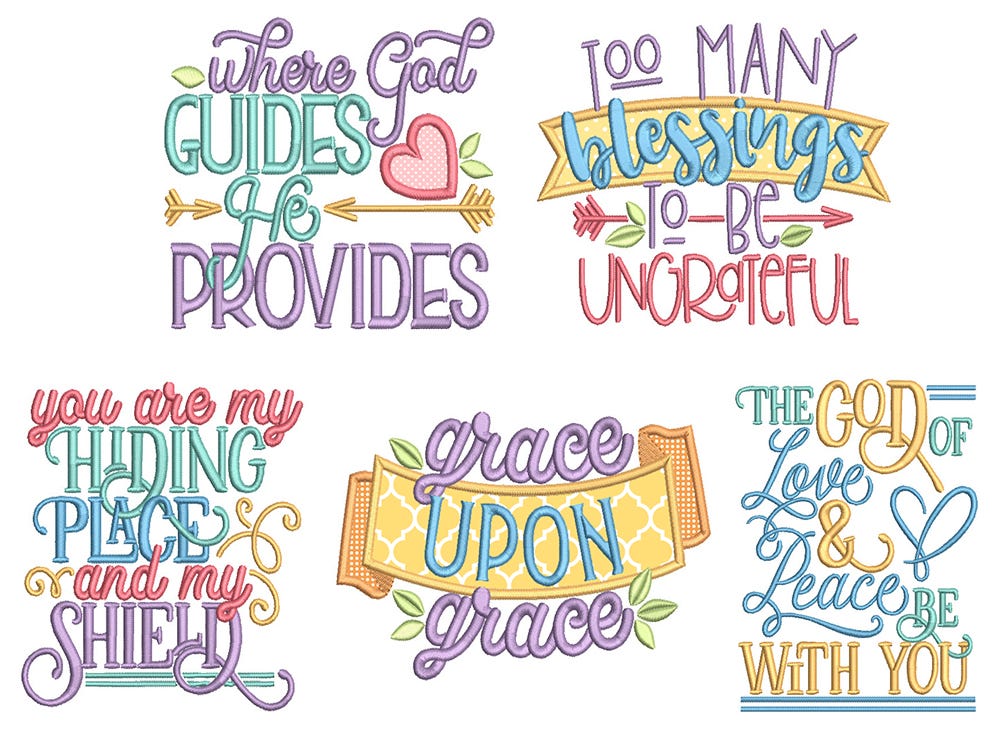 where God
GUIDES
He
PROVIDES
TOO MANY
blessings
TO BE
UNGRATEFUL
you are my
HIDING
PLACE
and my
SHIELD
grace
UPON
grace
THE GOD
OF
Love
&
Peace
BE
WITH YOU